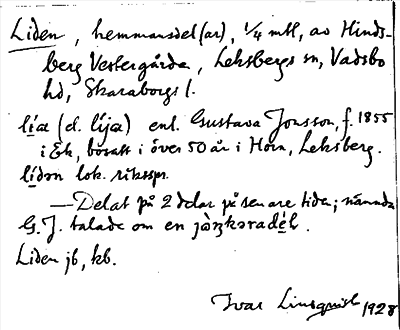 Liden, hemmansdel(ar), 1/4 mtl, av Hinds-
berg Vestergårda, Leksbergs sn, Vadsbo
hd, Skaraborgs l.
líæ (el. líjæ) enl. Gustava Jonsson, f. 1855
i Ek, bosatt i över 50 år i Horn, Leksberg.
lídən lok. riksspr.
—Delat på 2 delar på senare tiden; nämnda
G. J. talade om en
Liden jb, kb.
Ivar Lindquist 1928